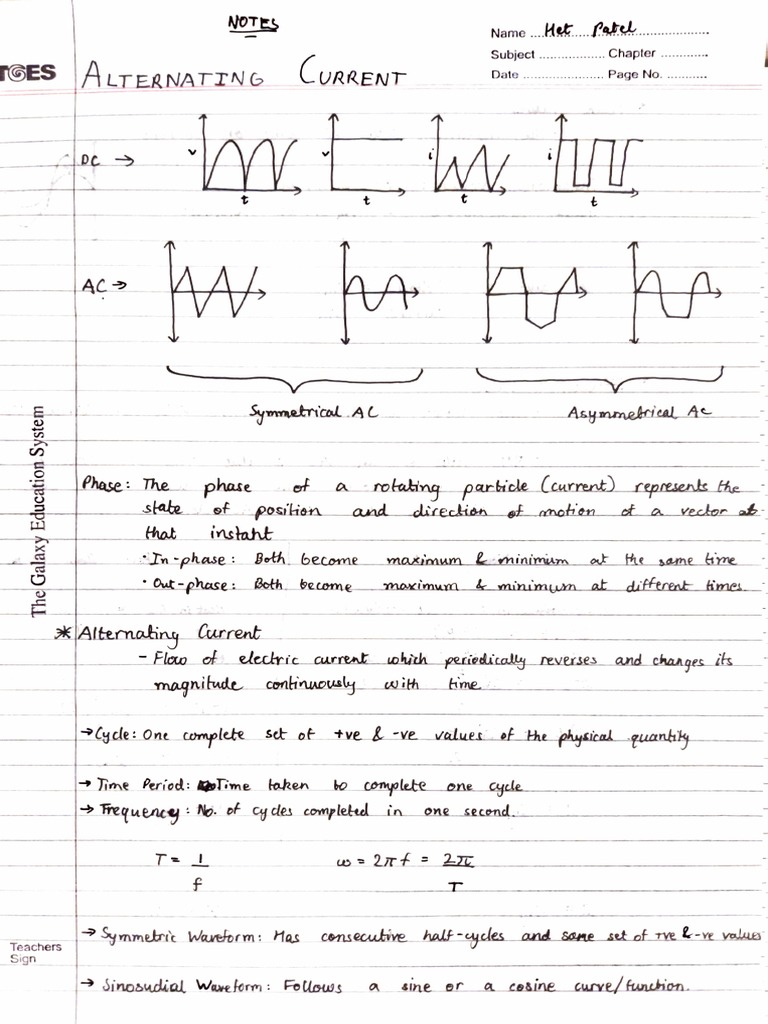 NOTES
Name .... Het Patel ....................
Subject ................. Chapter ............
Date ..................... Page No. ..........
TGES
ALTERNATING CURRENT
DC →
v
t
v
t
i
t
i
t
AC →
Symmetrical AC
Asymmetrical AC
The Galaxy Education System
Phase: The phase of a rotating particle (current) represents the
state of position and direction of motion of a vector at
that instant
· In-phase: Both become maximum & minimum at the same time
· Out-phase: Both become maximum & minimum at different times.
* Alternating Current
- Flow of electric current which periodically reverses and changes its
magnitude continuously with time
→ Cycle: One complete set of +ve & -ve values of the physical quantity
→ Time Period: Time taken to complete one cycle
→ Frequency: No. of cycles completed in one second.
T = 1/f ω = 2πf = 2π/T
→ Symmetric Waveform: Has consecutive half-cycles and same set of +ve & -ve values
Teachers
Sign
→ Sinosudial Waveform: Follows a sine or a cosine curve/function.